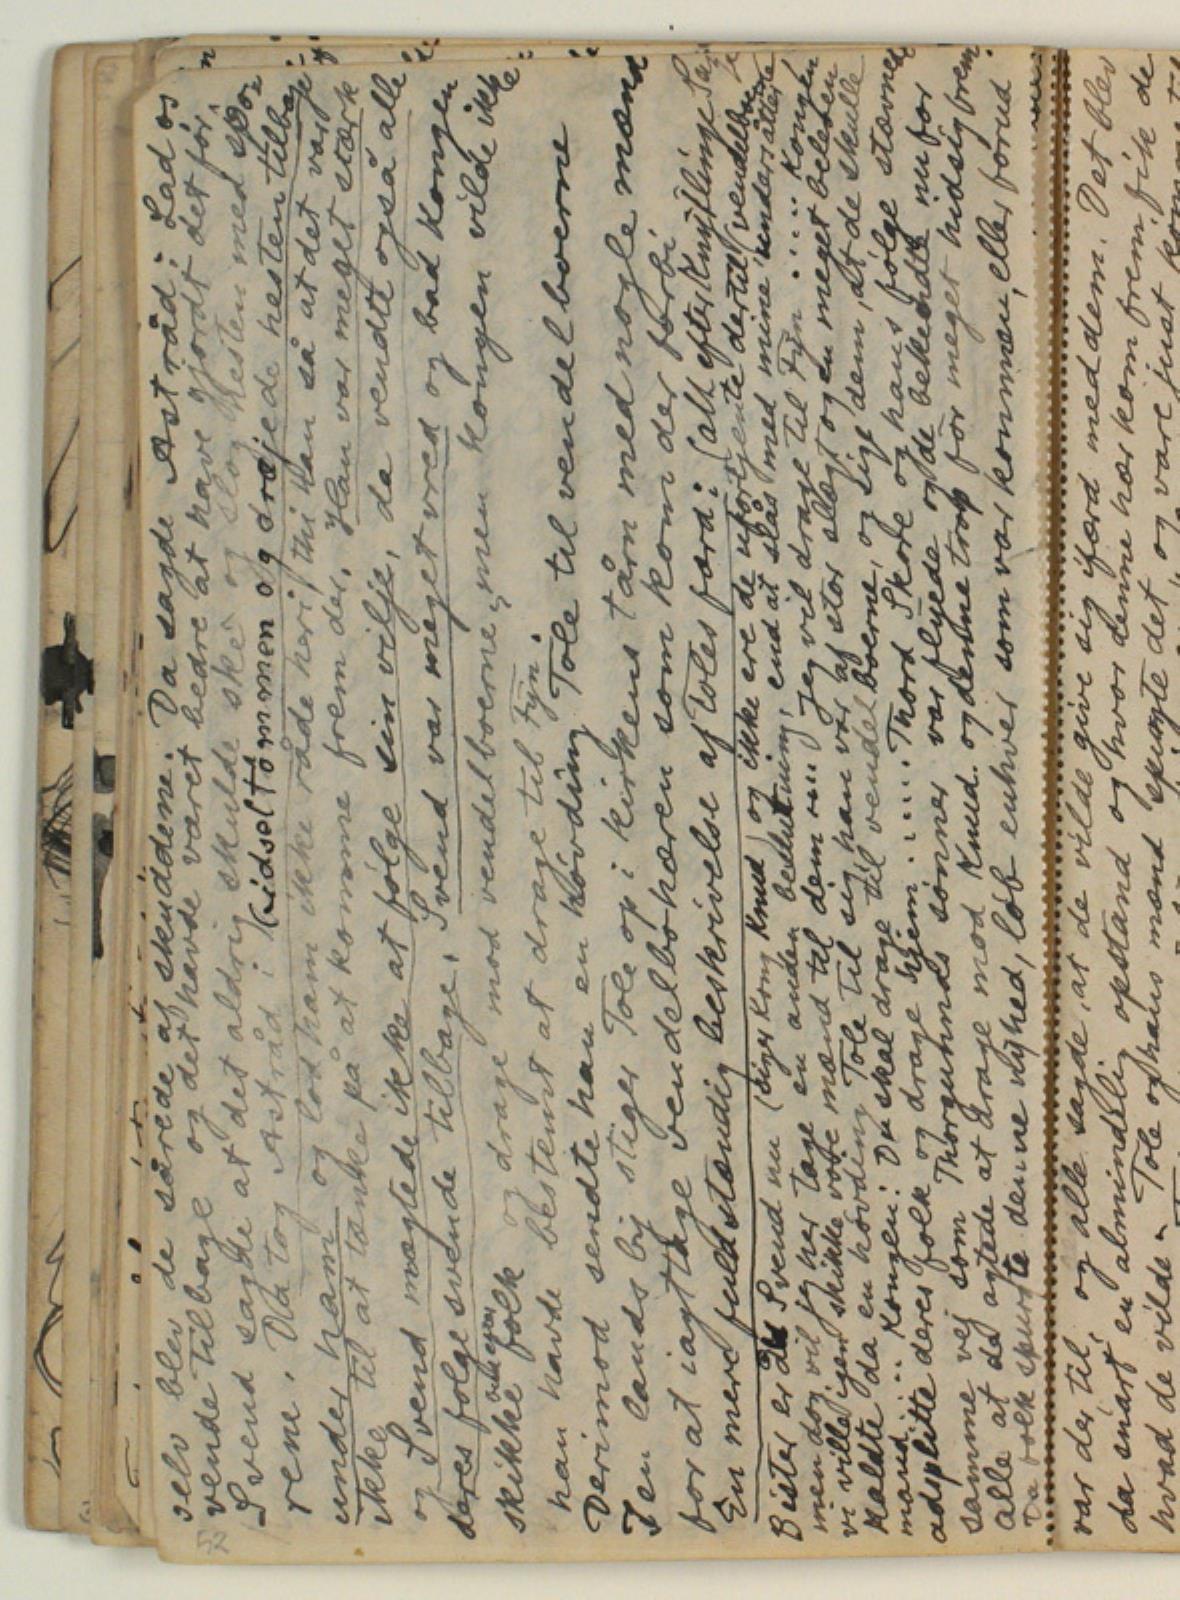 52
selv blev de sårede af skuddene. Da sagde Astråd: Lad os
vende tilbage og det havde været bedre at have gjordt det før
Svend sagde at det aldrig skulde ske og slog hesten med spo-
rene. Da tog Astråd i Kidseltømmen og drejede hesten tilbage
under ham og lod ham ikke råde heri thi han så at det var
ikke til at tænke på at komme frem der. Han var meget stærk
og Svend mægtede ikke at følge sin vilje, da vendte også alle
deres følgesvende tilbage. Svend var meget vred og bad kongen
skikke folk og drage mod vendelboerne, men kongen vilde ikke
han havde bestemt at drage til Fyn.
Derimod sendte han en høvding Tole til vendelboerne
I en lands by stiger Tole op i kirkens tårn med nogle mænd
for at iagttage vendelbohæren som kom der forbi
En mere fuldstændig beskrivelse af Toles færd: (alt efter Knytlinge
Bister er du Svend nu (siger Kong Knud) og ikke ere de uforgjente dertil vendelboerne
men dog vil jeg her tage en anden beslutning, end at slås med mine undersåtter
vi ville igen skikke vore mænd til dem .... Jeg vil drage til Fyn ..... Kongen
kaldte da en høvding Tole til sig han var af stor slægt og en meget beleven
mand... Kongen: Du skal drage til vendelboerne, og sige dem, at de skulle
adsplitte deres folk og drage hjem ..... Thord Skore og hans følge stævnede
samme vej som Thorgunnds sønner var flyede og de bekendte nu for
alle at da agtede at drage mod Knud. og denne trop før meget hidsig frem.
Da folk spurgte denne nyhed, løb enhver som var kommen, eller forud
var der til, og alle sagde, at de vilde give sig i færd med dem. Det blev
da snart en almindelig opstand og hvor denne hær kom frem, fik de
hvad de vilde - Tole og hans mænd spurgte det og vare just